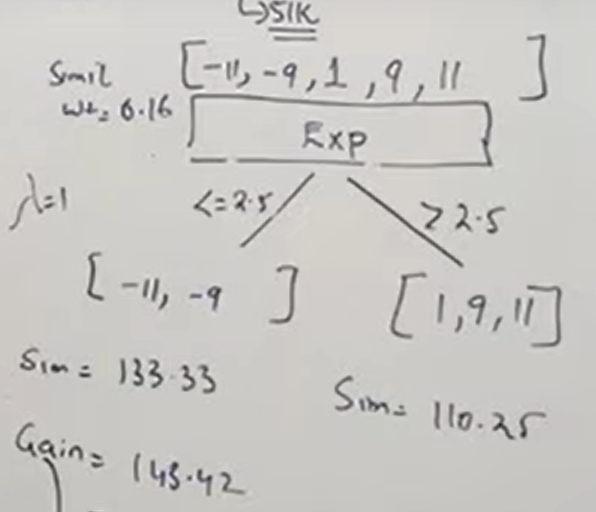 ↳51K
[-11, -9, 1, 9, 11]
Simil
wt= 0.16
Exp
λ=1
<=2.5
>2.5
[-11, -9]
[1, 9, 11]
Sim= 133.33
Sim= 110.25
Gain= 143.42